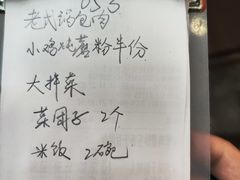 老式锅包肉
小鸡炖蘑粉半份
大拌菜
菜团子 2个
米饭 2碗